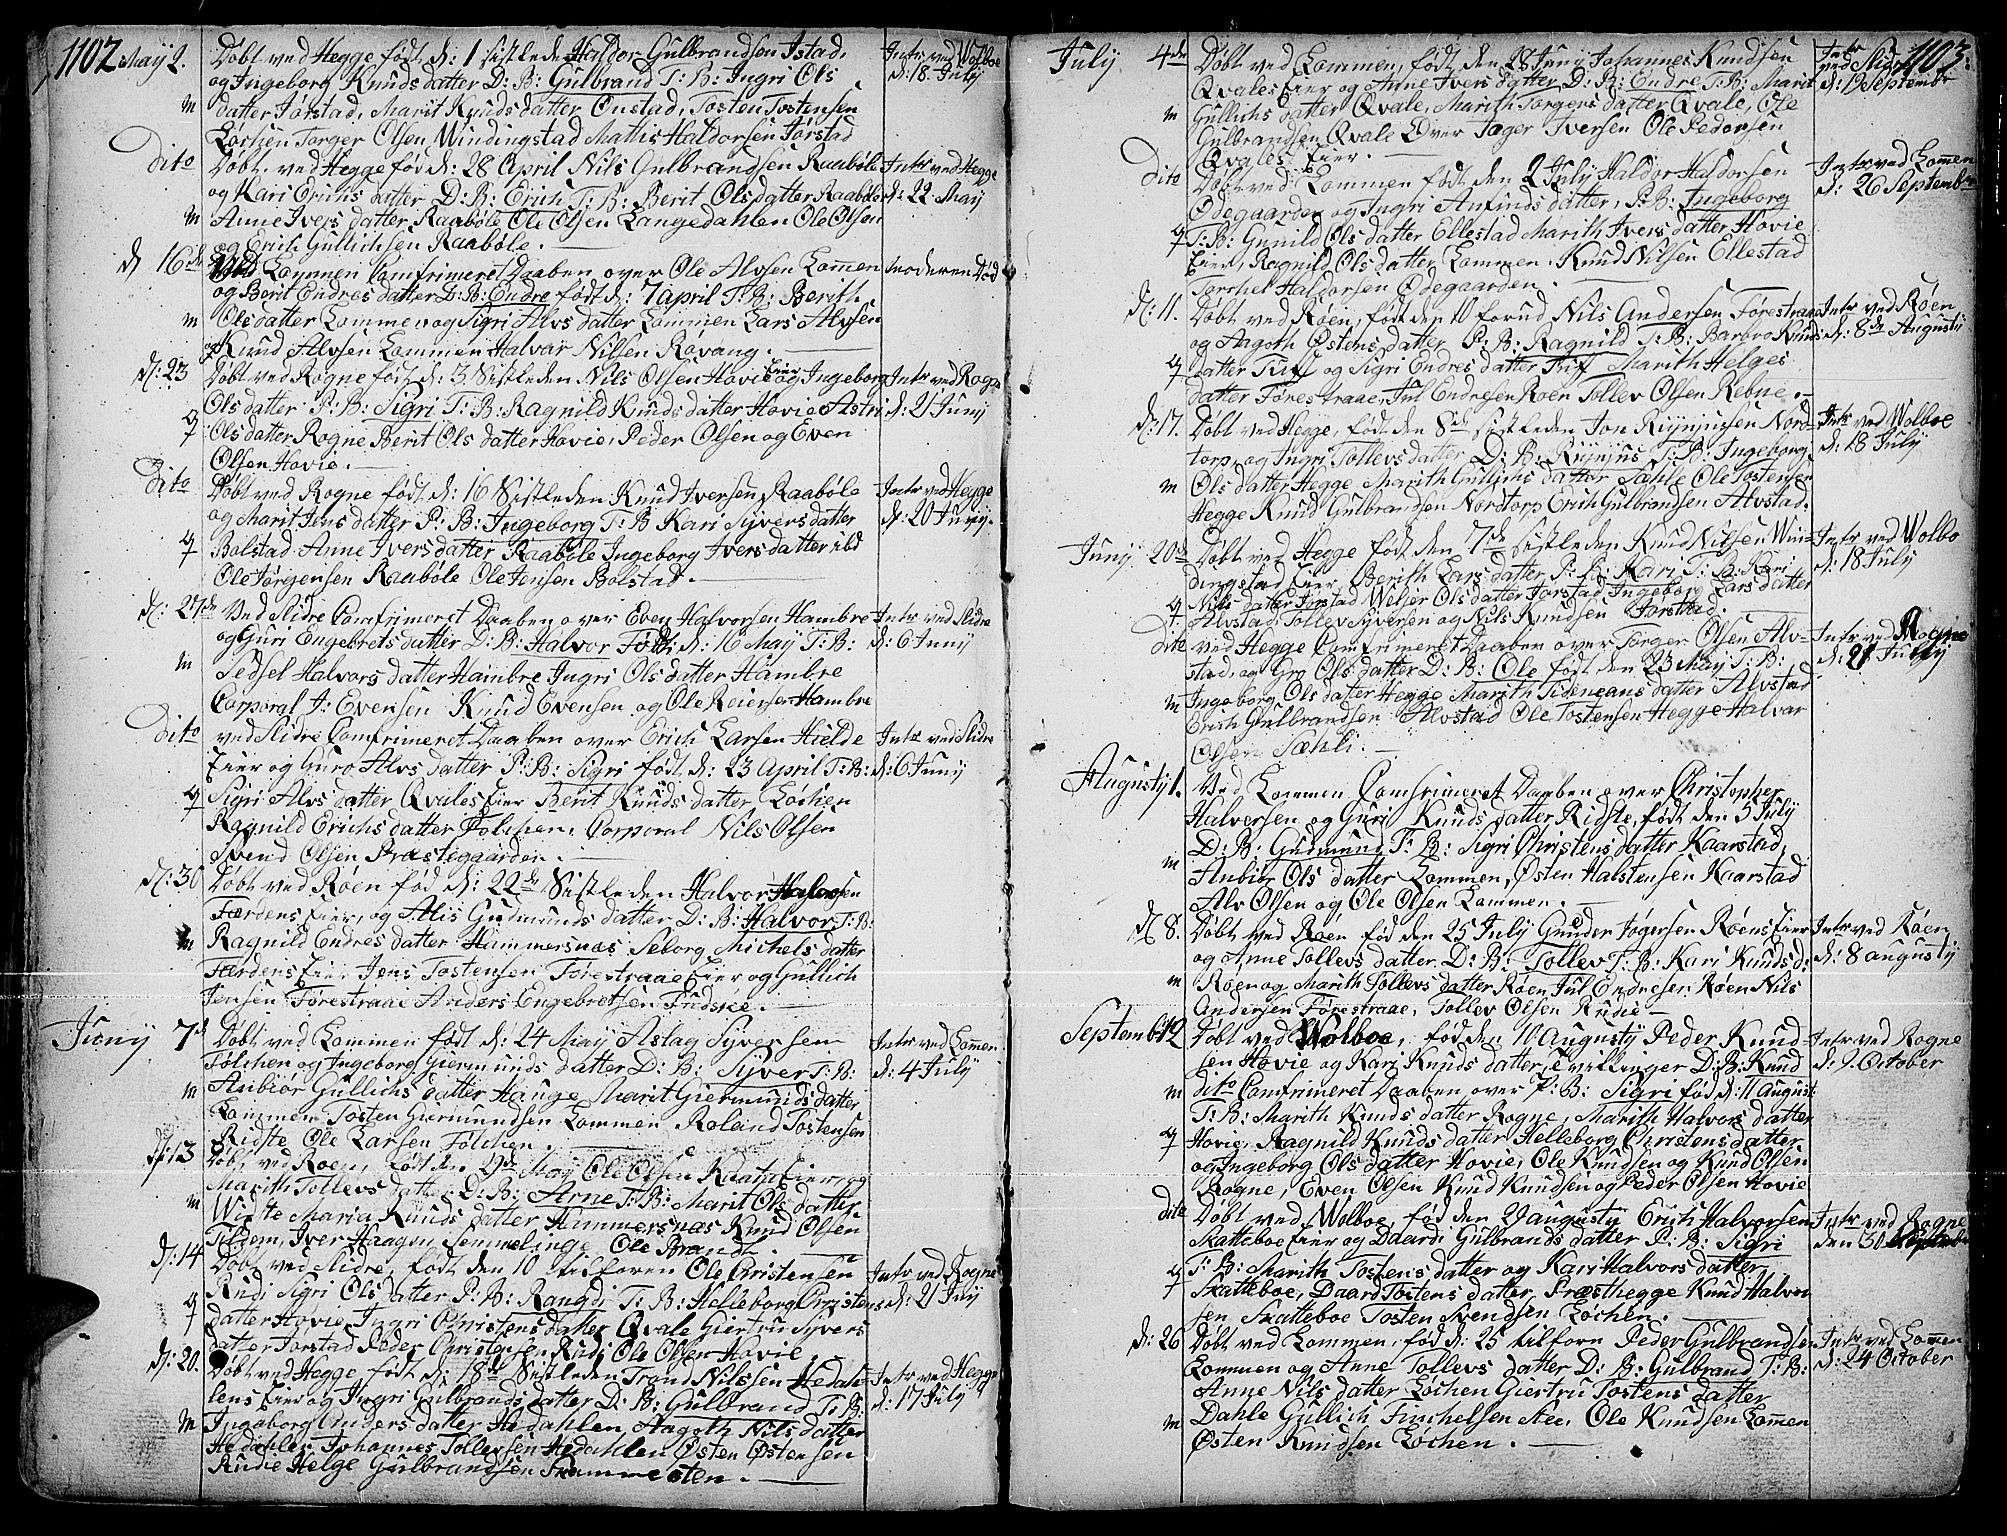 1102
May 2. Døbt ved Hegge født d: 1 sistleden Haldor Gulbrandsen Istad,
og Ingeborg Knuds datter D: B: Gulbrand T: B: Ingri Ols
datter Jørstad, Marit Knuds datter Onstad, Tosten Tostensen
Løchen Torger Olsen Windingstad Mattis Haldorsen Jørstad
m
Intr ved Wolboe
d: 18 July
Dito Døbt ved Hegge fød d: 28 April Nils Gulbrandsen Raabøle
og Kari Erichs datter D: B: Erich T: B: Berit Ols datter Raabøle
m Anne Ivers datter Raabøle Ole Olsen Langedahlen Ole Olsen
og Erich Gullichsen Raabøle.
Intr ved Hegge
d: 22 May
d 16de Ved Lommen Comfirmeret Daaben over Ole Alvsen Lommen
og Berit Endres datter D: B: Endre født d: 7 April T: B: Berith
m Ols datter Lommen og Sigri Alvs datter Lommen Lars Alvsen
og Knud Alvsen Lommen Halvar Nilsen Rovang.
Moderen Død
d: 23 Døbt ved Rogne født d: 3 Sistleden Nils Olsen Hovie Eier og Ingeborg
Ols datter P: B: Sigri T: B: Ragnild Knuds datter Hovie Astri
q Ols datter Rogne Berit Ols datter Hovie, Peder Olsen og Even
Olsen Hovie.
Intr ved Rogne
d: 21 Juny
Dito Døbt ved Rogne født d: 16 Sistleden Knud Iversen Raabøle
og Marit Jens datter P: B: Ingeborg T: B Kari Syvers datter
q Bolstad Anne Ivers datter Raabøle Ingeborg Ivers datter ibd
Ole Jørgensen Raabøle Ole Jensen Bolstad.
Intr ved Hegge
d: 20 Juny.
d: 27de Ved Slidre Comfirmeret Daaben over Even Halvorsen Hambre
og Guri Engebrets datter D: B: Halvor Født d: 16 May T: B:
m Sedsel Halvors datter Hambre Ingri Ols datter Hambre
Corporal J: Evensen Knud Evensen og Ole Reiersen Hambre
Intr ved Slidre
d: 6 Juny
Dito ved Slidre Comfirmeret Daaben over Erich Larsen Hielde
Eier og Guro Alvs datter P: B: Sigri født d: 23 April T: B:
q Sigri Alvs datter Qvales Eier Berit Knuds datter Løchen
Ragnild Erichs datter Følchen, Corporal Nils Olsen
Svend Olsen Præstegaarden.
Intr ved Slidre
d: 6 Juny
d: 30 Døbt ved Røen fød d: 22de Sistleden Halvor
Færdens Eier, og Alis Gudmunds datter D: B: Halvor T: B:
m Ragnild Endres datter Hammersnæs Seborg Michels datter
Færdens Eier Jens Tostensen Førestraae Eier og Gullich
Jensen Førestraae Anders Engebretsen Fudske.
Juny 7d Døbt ved Lommen født d: 24 May Aslag Syversen
Følchen og Ingeborg Giermunds datter D: B: Syver T: B:
m Anbiør Gullichs datter Hauge, Marit Giermunds datter
Lommen Tosten Giermundsen Lommen Roland Tostensen
Ridste Ole Larsen Følchen.
Intr ved Lomen
d: 4 July
d: 13 Døbt ved Røen, født den 9de May Ole Olsen Kaants Eier, og
Marith Tollevs datter D: B: Arne T: B: Marit Ols datter
m Widste Maria Knuds datter Hammersnæs Knud Olsen
Fildem, Iver Haagensen Semmelinge Ole Brandt.
d: 14 Døbt ved Slidre, født den 10 tilforen Ole Christensen
Rudi Sigri Ols datter P: B: Rangdi T: B: Helleborg Christens
q datter Hovie, Ingri Christens datter Qvale Giertru Syvers
datter Jørstad Peder Christensen Rudi Ole Olsen Hovie.
Intr ved Rogne
d: 21 July
d: 20. Døbt ved Hegge, født d: 18de Sistleden Trond Nilssen Hedah-
lens Eier og Ingri Gulbrands datter D: B: Gulbrand T: B:
m Ingeborg Anders datter Hedahlen, Aagoth Nils datter
Hedahlen, Johannes Tollevsen Hedahlen Østen Østensen
Rudie Helge Gulbrandsen
Intr ved Hegge
d: 17 July
1103.
July 4de Døbt ved Lommen, født den 28 Juny Johannes Knudsen
Qvales Eier og Anne Ivers datter D: B: Endre T: B: Marit
m Gullichs datter Qvale, Marith Torgers datter Qvale, Ole
Gulbrandsen Qvale Iversen Ole Pedersen
Qvales Eier.
Intr ved Slidre
d: 19 Septembr
dito Døbt ved Lommen født den 2 July Haldor Haldorsen
Ødegaarden og Ingri Anfinds datter, P: B: Ingeborg
q T: B: Gunild Ols datter Ellestad Marith Ivers datter Hovie
Eier, Ragnild Ols datter Lommen. Knud Nilsen Ellestad
Torchel Haldorsen Ødegaarden.
Intr ved Lomen
d: 26 Septembr
d: 11. Døbt ved Røen, født den 10 forud Nils Andersen Førestraae
og Aagoth Østens datter P: B: Ragnild T: B: Barbro Knuds
q datter og Sigri Endres datter Marith Helges
datter Førestraae, Jul Endresen Røen Tollev Olsen Rebne.
Intr ved Røen
d: 8de Augusty
d: 17. Døbt ved Hegge, født den 8de sistleden Jon Reynjusen Nord-
torp, og Ingri Tollevs datter D: B: T: B: Ingeborg
m Ols datter Hegge Marith datter Sæhle Ole Tostensen
Hegge Knud Gulbrandsen Nordtorp Erich Gulbrandsen Alvstad.
Intr ved Wolboe
d: 18 July
Juny 20de Døbt ved Hegge født den 7de sistleden Knud Nilsen Win-
dingstad Eier, Berith Lars datter P: B: Kari T: B: Kari
q Nils datter Jørstad Ols datter Jørstad Ingeborg Lars datter
Alvstad Tollev Syversen og Nils Knudsen Jørstad.
Intr ved Wolbo
d: 18 July
dito ved Hegge Comfirmeret Daaben over Torger Olsen Alv-
stad, og Gro Ols datter D: B: Ole født den 23 May T: B:
m Ingeborg Ols datter Hegge Marith datter Alvstad
Erich Gulbrandsen Alvstad Ole Tostensen Hegge Halvar
Olsen Sæhli.
Intr ved Rogne
d: 21 July
Augusty 1. Ved Lommen Comfirmeret Daaben over Christopher
Halversen og Guri Knuds datter Ridste, født den 5 July
m D: B: Gudmund T: B: Sigri Christens datter Kaarstad,
Anbiør Ols datter Lommen, Østen Halstensen Kaarstad
Alv Olsen og Ole Olsen Lommen.
d 8. Døbt ved Røen fød den 25 July Gunder Jøgersen Røens Eier
og Anne Tollevs datter D: B: Tollev T: B: Kari Knuds d:
m Røen og Marith Tollevs datter Røen Jul Endresen Røen Nils
Andersen Førestraae, Tollev Olsen Rudie
Intr ved Røen
d: 8 augusty
Septemb: 12 Døbt ved Wolboe, fød den 10 Augusty Peder Knud
sen Hovie og Kari Knuds datter, Tvillinger D: B: Knud
m dito Comfirmeret Daaben over P: B: Sigri fød d: 11 August:
T: B: Marith Knuds datter Rogne, Marith Halvors datter
q Hovie, Ragnild Knuds datter Helleborg Christens datter
og Ingeborg Ols datter Hovie, Ole Knudsen og Knud Olsen
Rogne, Even Olsen Knud Knudsen og Peder Olsen Hovie
Intr ved Rogne
d: 9 October
dito Døbt ved Wolboe, fød den 29 augusty Erich Halvorsen
Skatteboe Eier og Daardi Gulbrands datter P: B: Sigri
q T: B: Marith Tostens datter og Kari Halvors datter
Skatteboe, Daard Tostens datter, Præsthegge Knud Halvor
sen Skatteboe Tosten Svendsen Løchen.
Intr ved Rogne
den 30 Septemb
d: 26 Døbt ved Lommen, fød d: 25 tilforn Peder Gulbrandsen
Lommen og Anne Tollevs datter D: B: Gulbrand T: B:
Anne Nils datter Løchen Giertru Tostens datter
m Dahle Gullich Finchelsen Aee, Ole Knudsen Lomen
Østen Knudsen Løchen.
Intr ved Lomen
d: 24 October